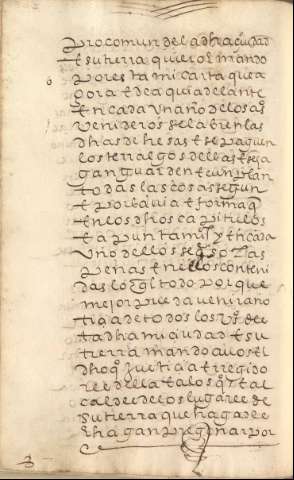 procomun de la dha ciudad
e su tierra quiero e mando
por esta mi carta que a
gora e de aqui adelante
en cada un año de los as
venideros se labren las
dhas dehesas e se paguen
los terralgos dellas e se ha
gan guarden e cunplan
todas las cosas segun
e por la via e forma q
en los dhos capitulos
e apuntami y en cada
uno dellos se qs so las
penas en ellos conteni
das lo qual todo porque
mejor pueda venir a no
ticia de todos los vos des
ta dha mi ciudad e su
tierra mando a vos el
dho q justicia e regido
res della e a los q tal
caldes de los lugares de
su tierra que hagades e
hagan pregonar por